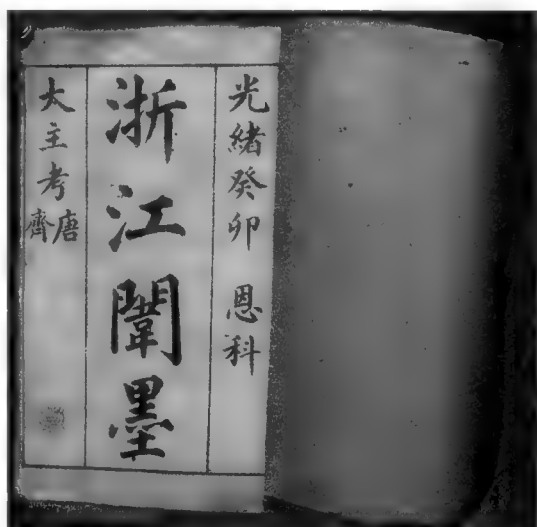 光緒癸卯 恩科
浙江闈墨
大主考唐齊